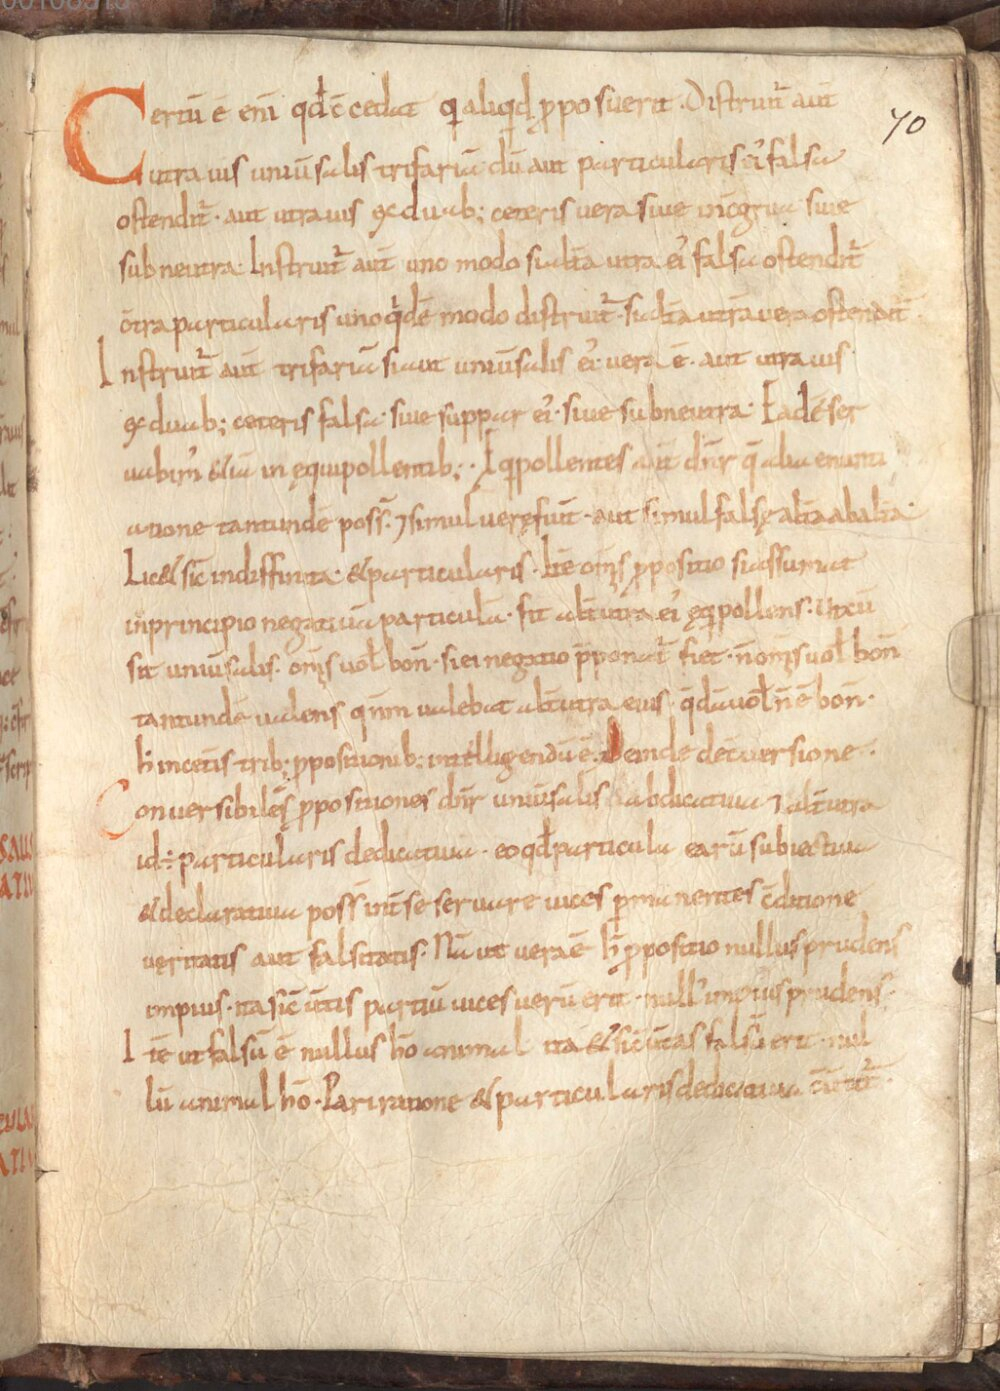 70
Certū ē eni̅ qđ c̄cedat qi aliqđ p̱posuerit. Distruit᷑ aut̄
utrauis uniu̅salis trifariā dū aut particularis ei᷒ falsa
ostendit᷑. aut utrauis ex duab; ceteris uera siue incg̅rua siue
subneutra. Instruit᷑ aut̄ uno modo si alt̄a utra ei᷒ falsa ostendit᷑
c̄tra particularis uno qi̇dē modo distruit᷑. si alt̄a utra uera ostendit᷑
Instruit᷑ aut̄ trifariā si aut uniu̅salis ei᷒ uera ē. aut utrauis
ex duab; ceteris falsa. siue suppar ei᷒. siue subneutra. Eadē ser
uabim᷒ & iā in ęquipollentib;. Ęq̇pollentes aut̄ dn̄r q̄ alia enunti
atione tantundē poss̄. ⁊ simul uerę fiunt. aut simul falsę alt̄a ab alt̄a.
Lic& sic̄ indiffinita. & particularis. Itē oms̄ p̱positio si assumat
in principio negatiuā particulā. fit alt̄utra ei᷒ ęq̇pollens. Ut cū
sit uniu̅salis. oms̄ uol̄ bon̄. si ei negatio p̄ponat᷑ fiet. n̄ oms̄ uol̄ bon̄
tantundē ualens q̄ntū ualebat alt̄utra eius. q̄dā uol̄ n̄ ē bon̄.
h̄ in cet̄is trib; p̱positionib; intelligendū ē. Deinde de c̄uersione.
Conuersibiles p̱positiones dn̄r uniu̅salis abdicatiua ⁊ alt̄utra
id ÷ particularis dedicatiua. eo qđ particula earū subiectiua
& declaratiua poss̄ int̄ se seruare uices p̱manentes c̄ditione
ueritatis aut falsitatis. Nā ut uera ē h̄ p̱positio nullus prudens
impius. ita sic u̅sis partiū uices uerū erit. null᷒ impius prudens.
Itē ut falsū ē nullus hō animal ita & sic u̅sas falsū erit. nul
lū animal hō. Pari ratione & particularis dedicatiua c̄uertit᷑.